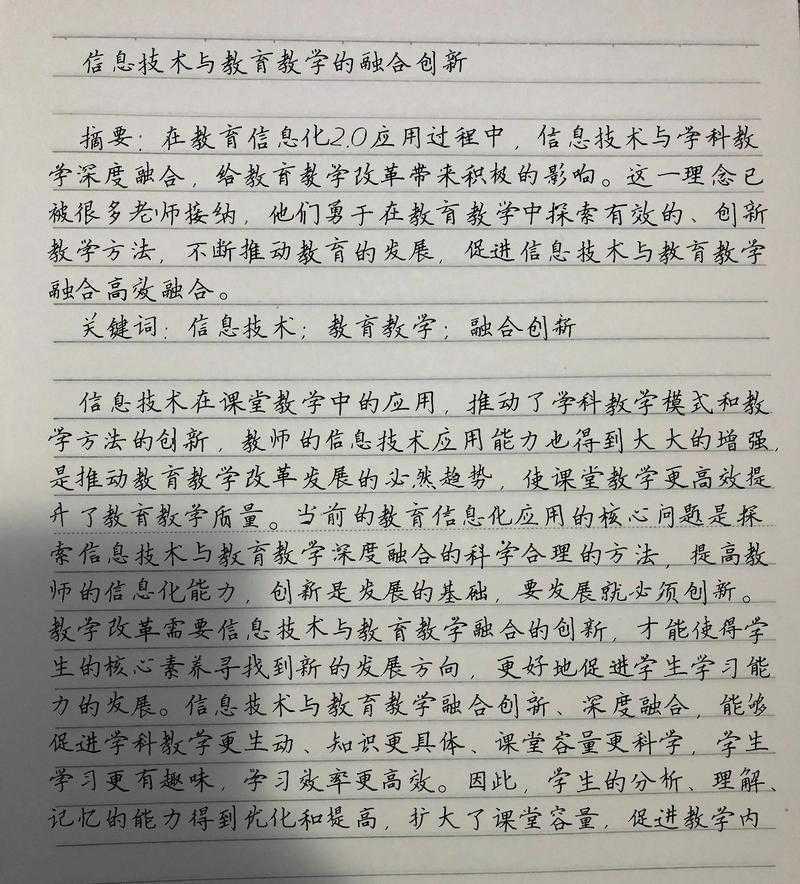 信息技术与教育教学的融合创新
摘要：在教育信息化2.0应用过程中，信息技术与学科教
学深度融合，给教育教学改革带来积极的影响。这一理念已
被很多老师接纳，他们勇于在教育教学中探索有效的、创新
教学方法，不断推动教育的发展，促进信息技术与教育教学
融合高效融合。
关键词：信息技术；教育教学；融合创新
信息技术在课堂教学中的应用，推动了学科教学模式和教
学方法的创新，教师的信息技术应用能力也得到大大的增强，
是推动教育教学改革发展的必然趋势，使课堂教学更高效提
升了教育教学质量。当前的教育信息化应用的核心问题是探
索信息技术与教育教学深度融合的科学合理的方法，提高教
师的信息化能力，创新是发展的基础，要发展就必须创新。
教学改革需要信息技术与教育教学融合的创新，才能使得学
生的核心素养寻找到新的发展方向，更好地促进学生学习能
力的发展。信息技术与教育教学融合创新、深度融合，能够
促进学科教学更生动、知识更具体、课堂容量更科学，学生
学习更有趣味，学习效率更高效。因此，学生的分析、理解、
记忆的能力得到优化和提高，扩大了课堂容量，促进教学内